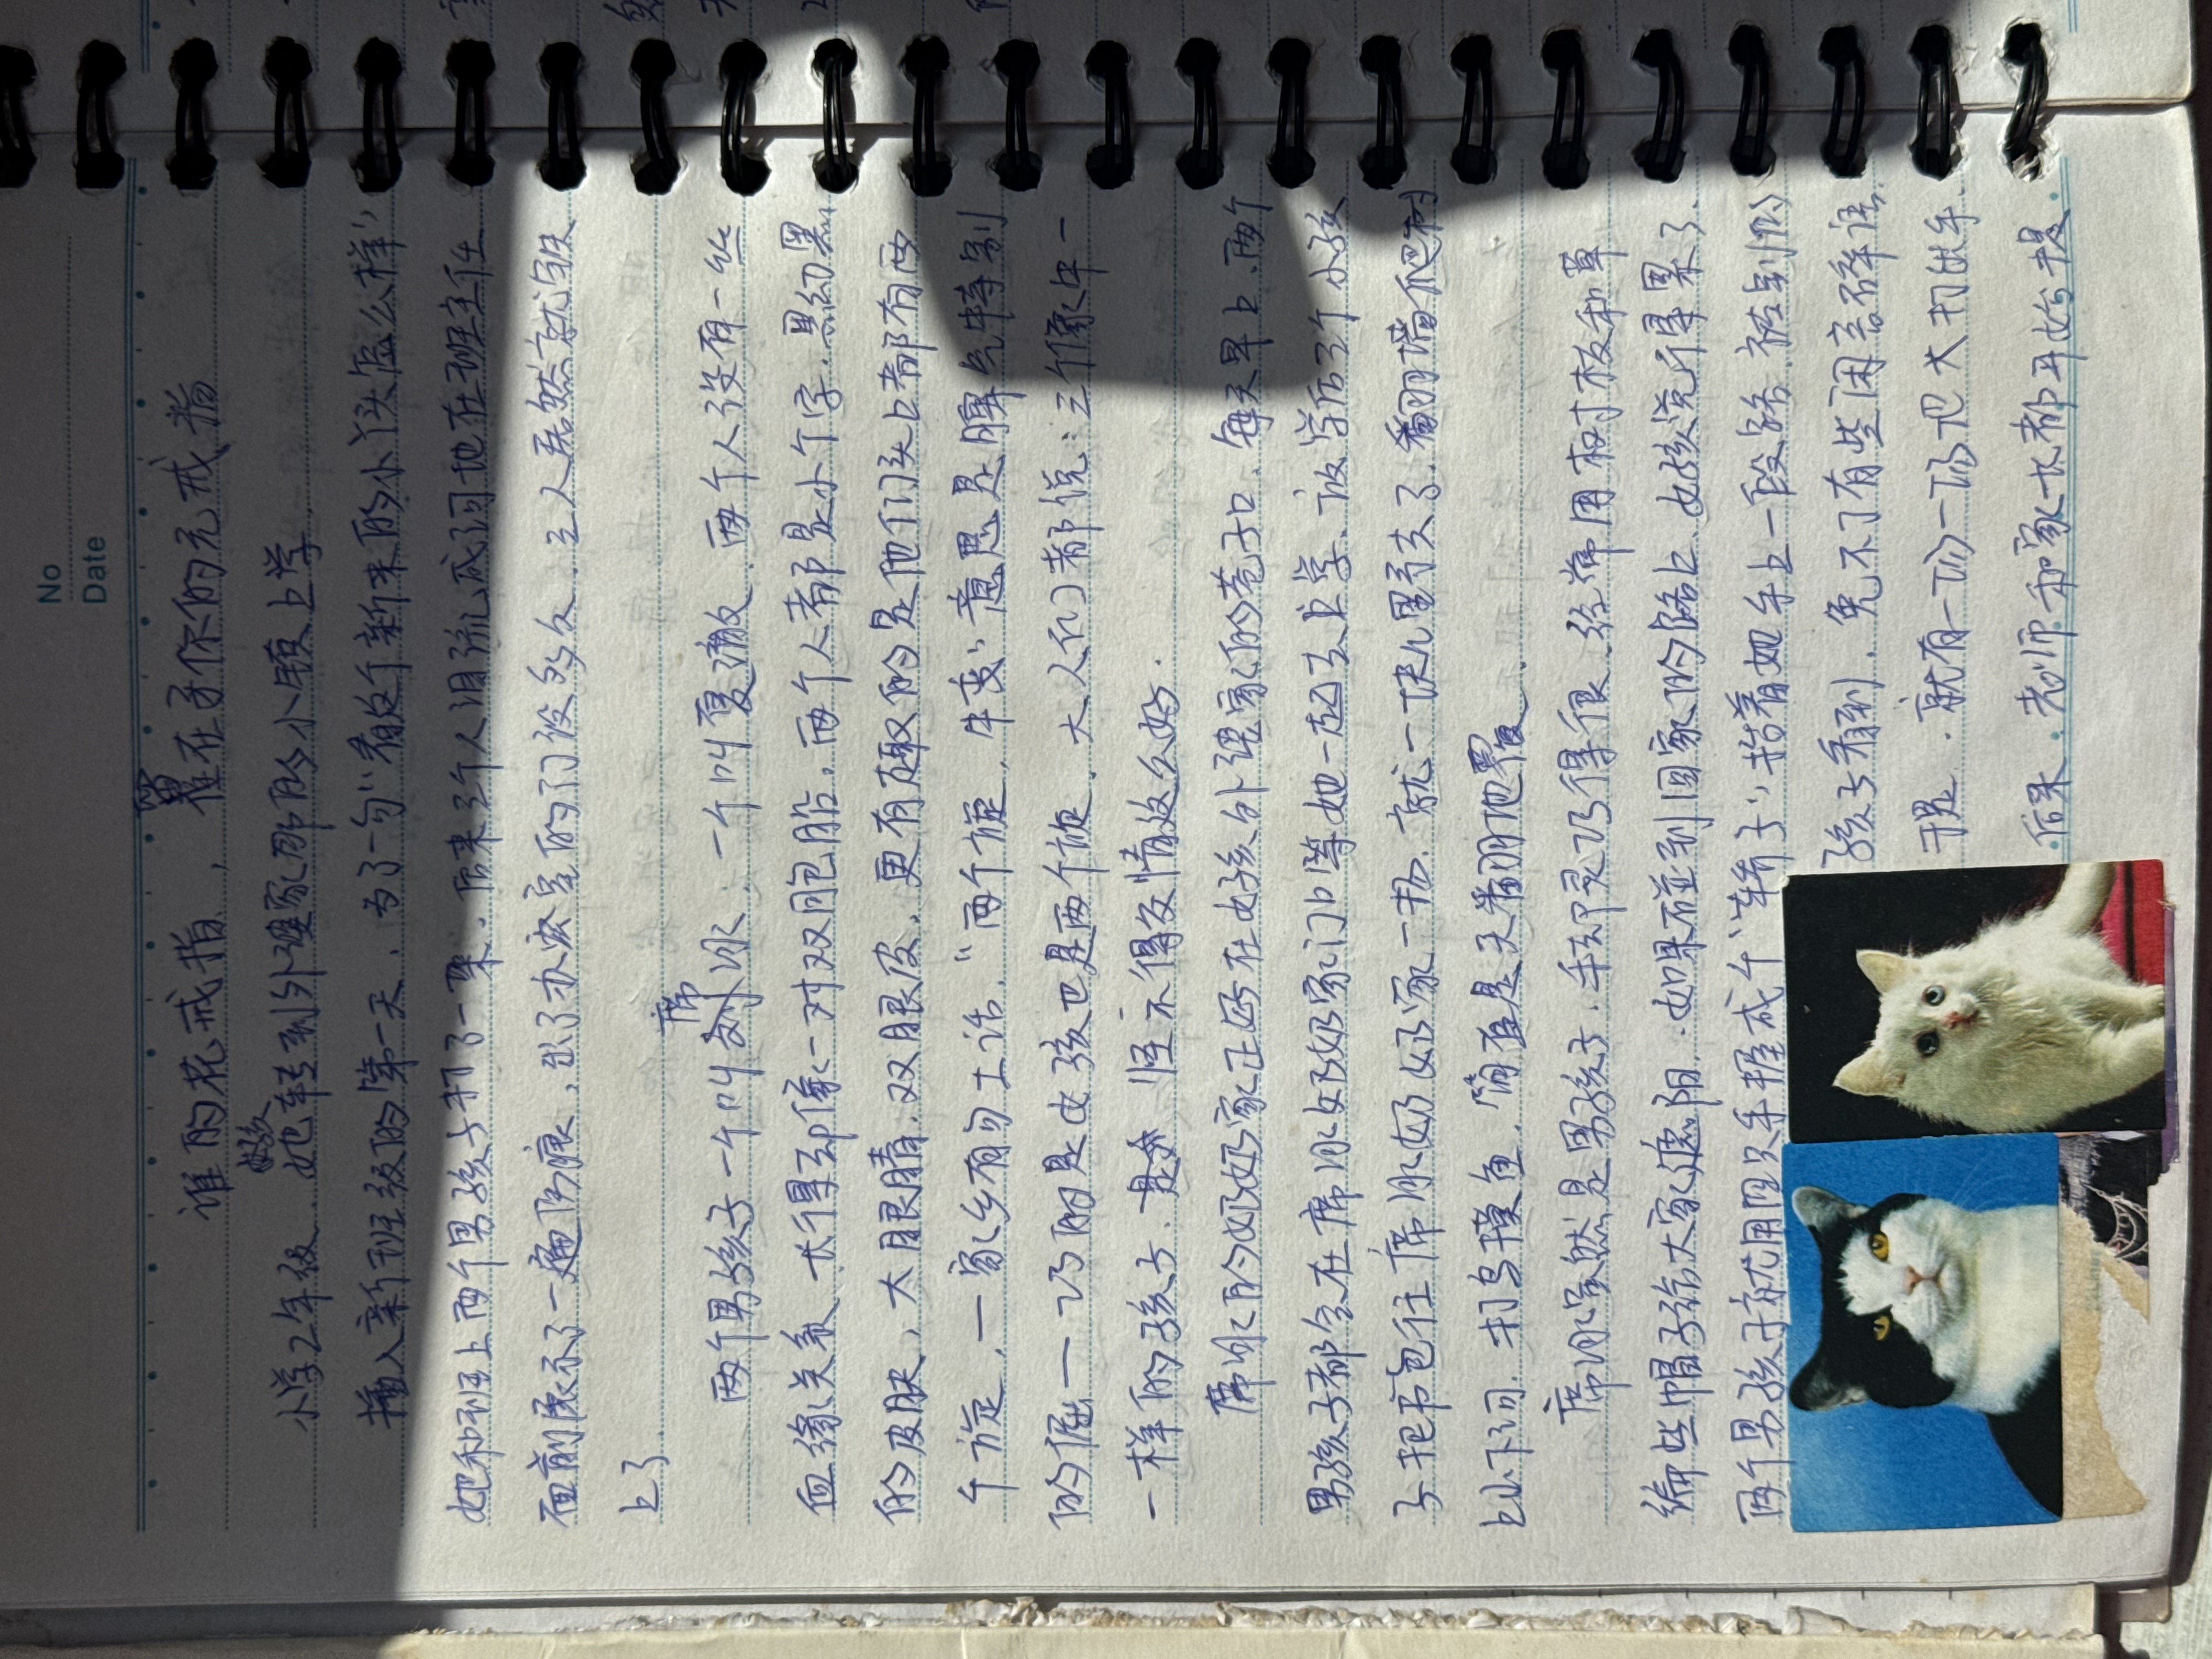 No
Date
谁的花戒指，套在了你的无戒指
小学2年级. 女孩她转到外婆家那所小镇上学
插入新班级的第一天. 为了一句“看这个新来的小丫头怎么样”
她和班上两个男孩子打了一架. 后来三个人眼泪地在班主任
面前展示了一遍伤痕, 出了办公室的门没多久, 三人居然就玩
上了.
两个男孩子一个叫席冰 一个叫夏澈. 两个人没有一丝
血缘关系 长得却像一对双胞胎. 两个人都是小个子. 黑幼黑
的皮肤, 大眼睛. 双眼皮. 更有趣的是他们头上都有两
个旋, 一家乡有句土话. “两个旋, 牛变” 意思是脾气特别
的倔——巧的是女孩也是两个旋. 大人们都说: 三个像牛一
一样的孩子. 怪不得友情这么好.
席冰的奶奶家正好在女孩外婆家的巷子口. 每天早上. 两个
男孩子都会在席冰奶奶家门口等她一起去上学. 放学后三个小孩
子把书包往席冰奶奶家一扔. 就一块儿野去了. 翻墙爬树
上山下河. 打鸟摸鱼. 简直是天翻地覆.
席冰虽然是男孩子. 手却灵巧得很. 经常用树枝和草
编些帽子给大家遮阳. 如果碰到回家的路上. 女孩说斤得累了.
两个男孩子就用四只手握成个“轿子” 抬着她走上一段路. 被别的
孩子看到. 免不了有些闲言碎语.
于是. 就有一次一次把大打出手.
后来. 老师和家长都开始于是